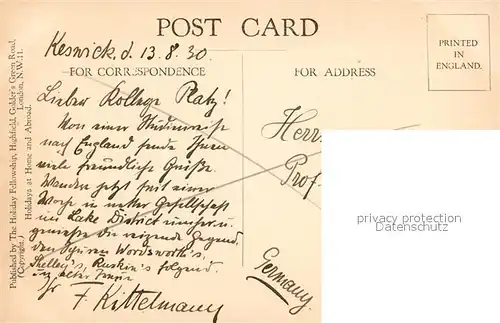 POST CARD
Keswick, d. 13.8.30
PRINTED
IN
ENGLAND.
FOR CORRESPONDENCE
FOR ADDRESS
Lieber Kollege Platz!
Von einer Studienreise
nach England sende Ihnen
viele freundliche Grüße.
Wandere jetzt seit einer
Woche in netter Gesellschaft
im Lake District umher u.
genieße die reizende Gegend,
den Spuren Wordsworth's,
Shelley's, Ruskin's folgend.
In alter Treue
Ihr F. Kittelmann
Herrn
Prof.
Germany.
privacy protection
www.ansichtskartenversand.com
Published by The Holiday Fellowship, Highfield, Golder's Green Road,
(Copyright.) London, N.W.11.
Holidays at Home and Abroad.